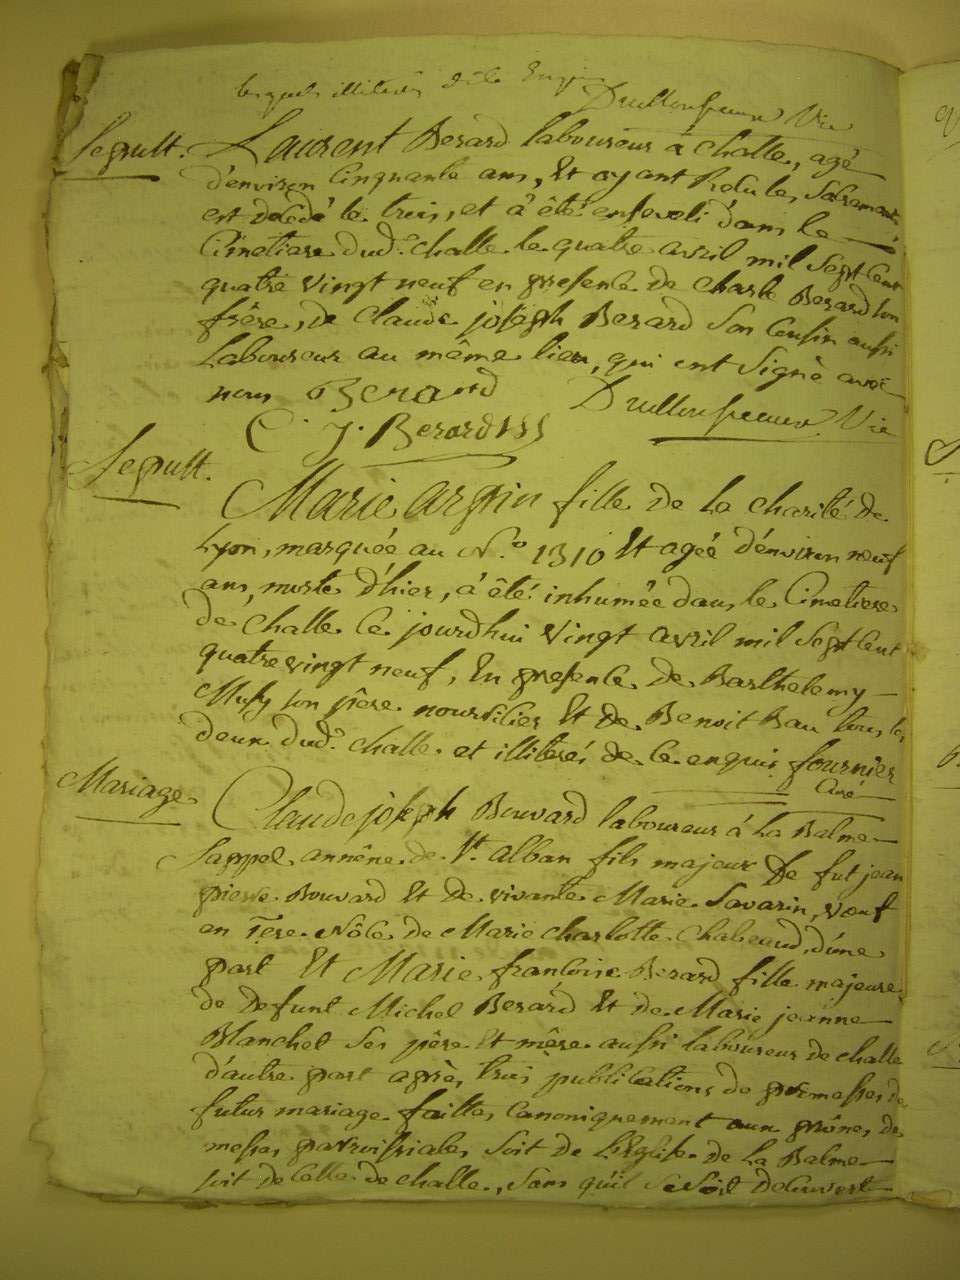 lesquels illiterés de ce Enquis
Vic
Sepult. Laurent Berard laboureur à Challe, agé
d'environ Cinquante ans, Et ayant Recu les Sacrements,
est décédé le trois, et à été enseveli dans le
Cimetiere dud.t Challe le quatre avril mil Sept Cent
quatre vingt neuf en presence de Charle Berard son
frère, de Claude joseph Berard Son Cousin aussi
Laboureur au même lieu, qui ont Signé avec
nous Berard Vic
C. J. Berard
Sepult.
Marie arpin fille de la charité de
Lyon, marquée au N.o 1310 Et agée d'environ neuf
ans, morte d'hier, à été inhumée dans le Cimetiere
de Challe Ce jourdhui vingt avril mil Sept Cent
quatrevingt neuf, En presence de Barthelemy
son père nourricier Et de Benoit Bau tous les
deux dud.t Challe et illiterés de ce enquis fournier
Curé
Mariage
Claude joseph Bouvard laboureur à La Balme
Sappel annêxe de St. alban fils majeur De fut jean
pierre Bouvard Et de vivante Marie Savarin, vœuf
en 1ere Nôce de Marie Charlotte Chabeaud, d'une
part Et Marie francoise Berard fille majeure
de Defunt Michel Berard Et de Marie jeanne
Blanchet Ses père Et mère aussi laboureur de Challe
d'autre part après trois publications de promesses de
futur mariage faittes Canoniquement aux prônes des
messes parroissiales Soit de L'Eglise de La Balme
soit de Celle de Challe, Sans qu'il Se Soit Decouvert